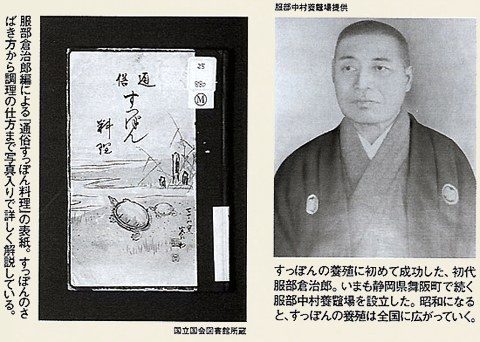 服部倉治郎編による『通俗すっぽん料理』の表紙。すっぽんのさ
ばき方から調理の仕方まで写真入りで詳しく解説している。
25
880
M
通俗
すっぽん
料理
国立国会図書館所蔵
服部中村養鼈場提供
すっぽんの養殖に初めて成功した、初代
服部倉治郎。いまも静岡県舞阪町で続く
服部中村養鼈場を設立した。昭和になる
と、すっぽんの養殖は全国に広がっていく。